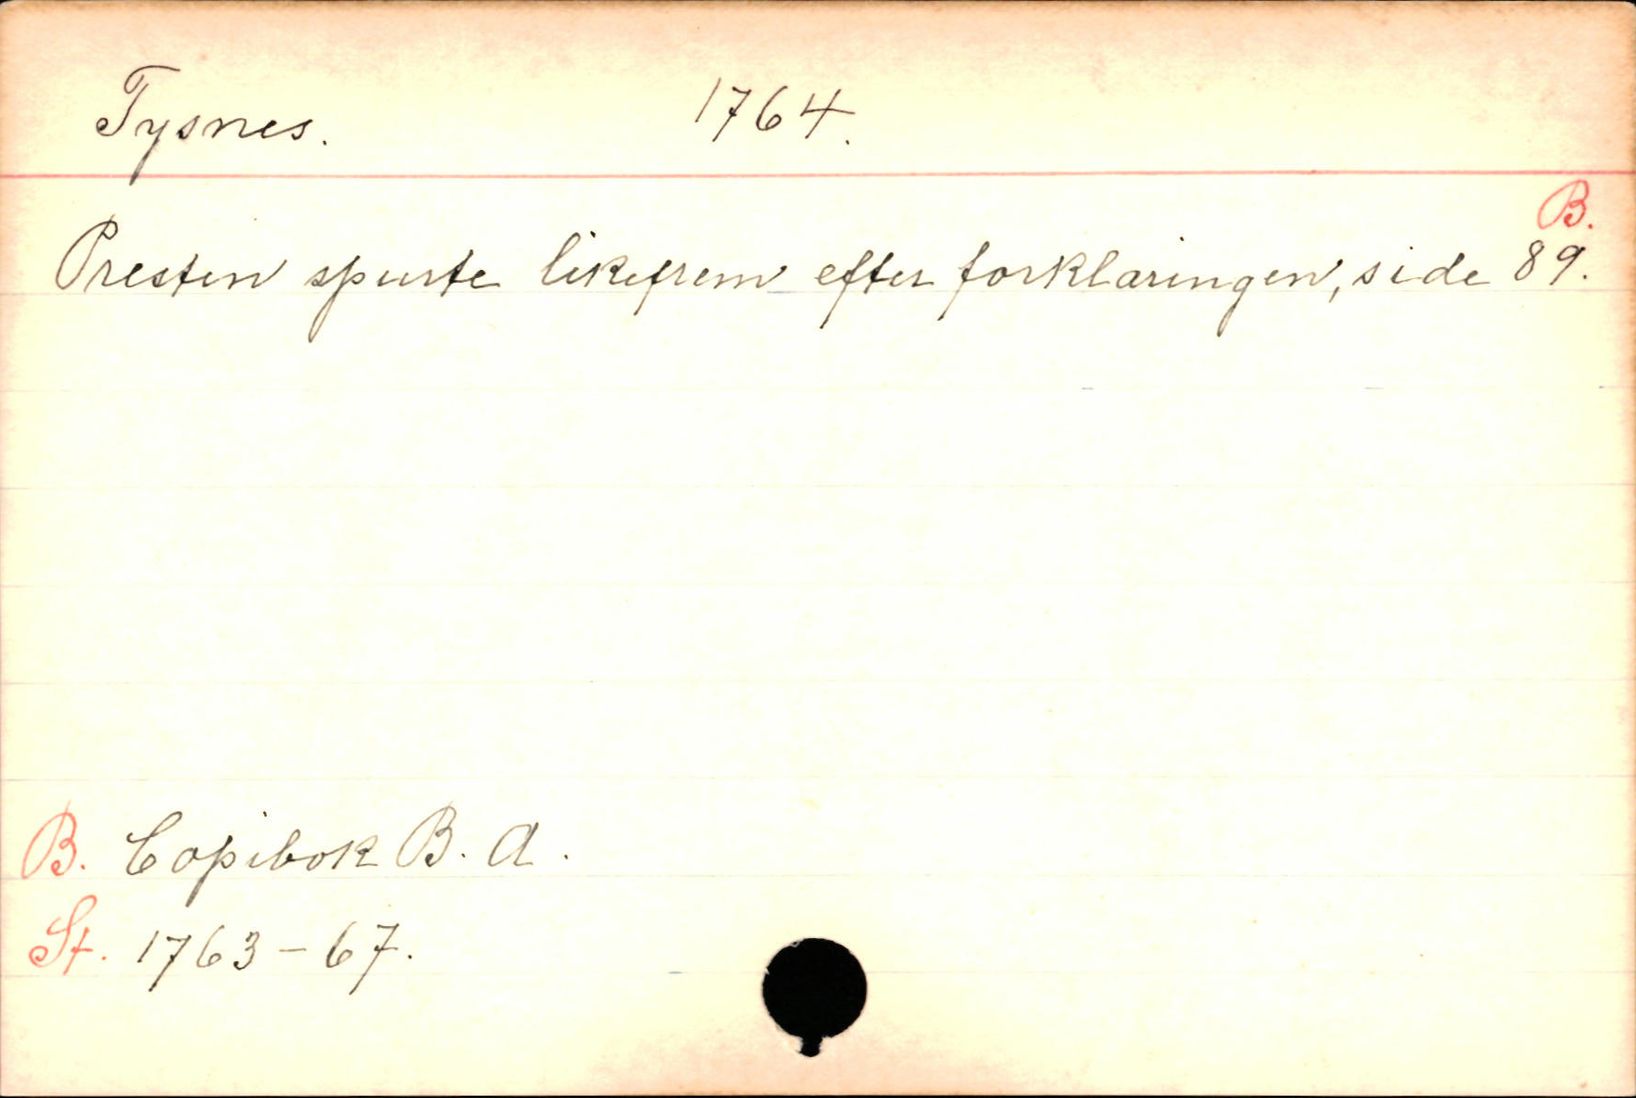 Tysnes. 1764.
B.
Presten spurte likefrem efter forklaringen, side 89.
B. Copibok B. A.
St. 1763-67.